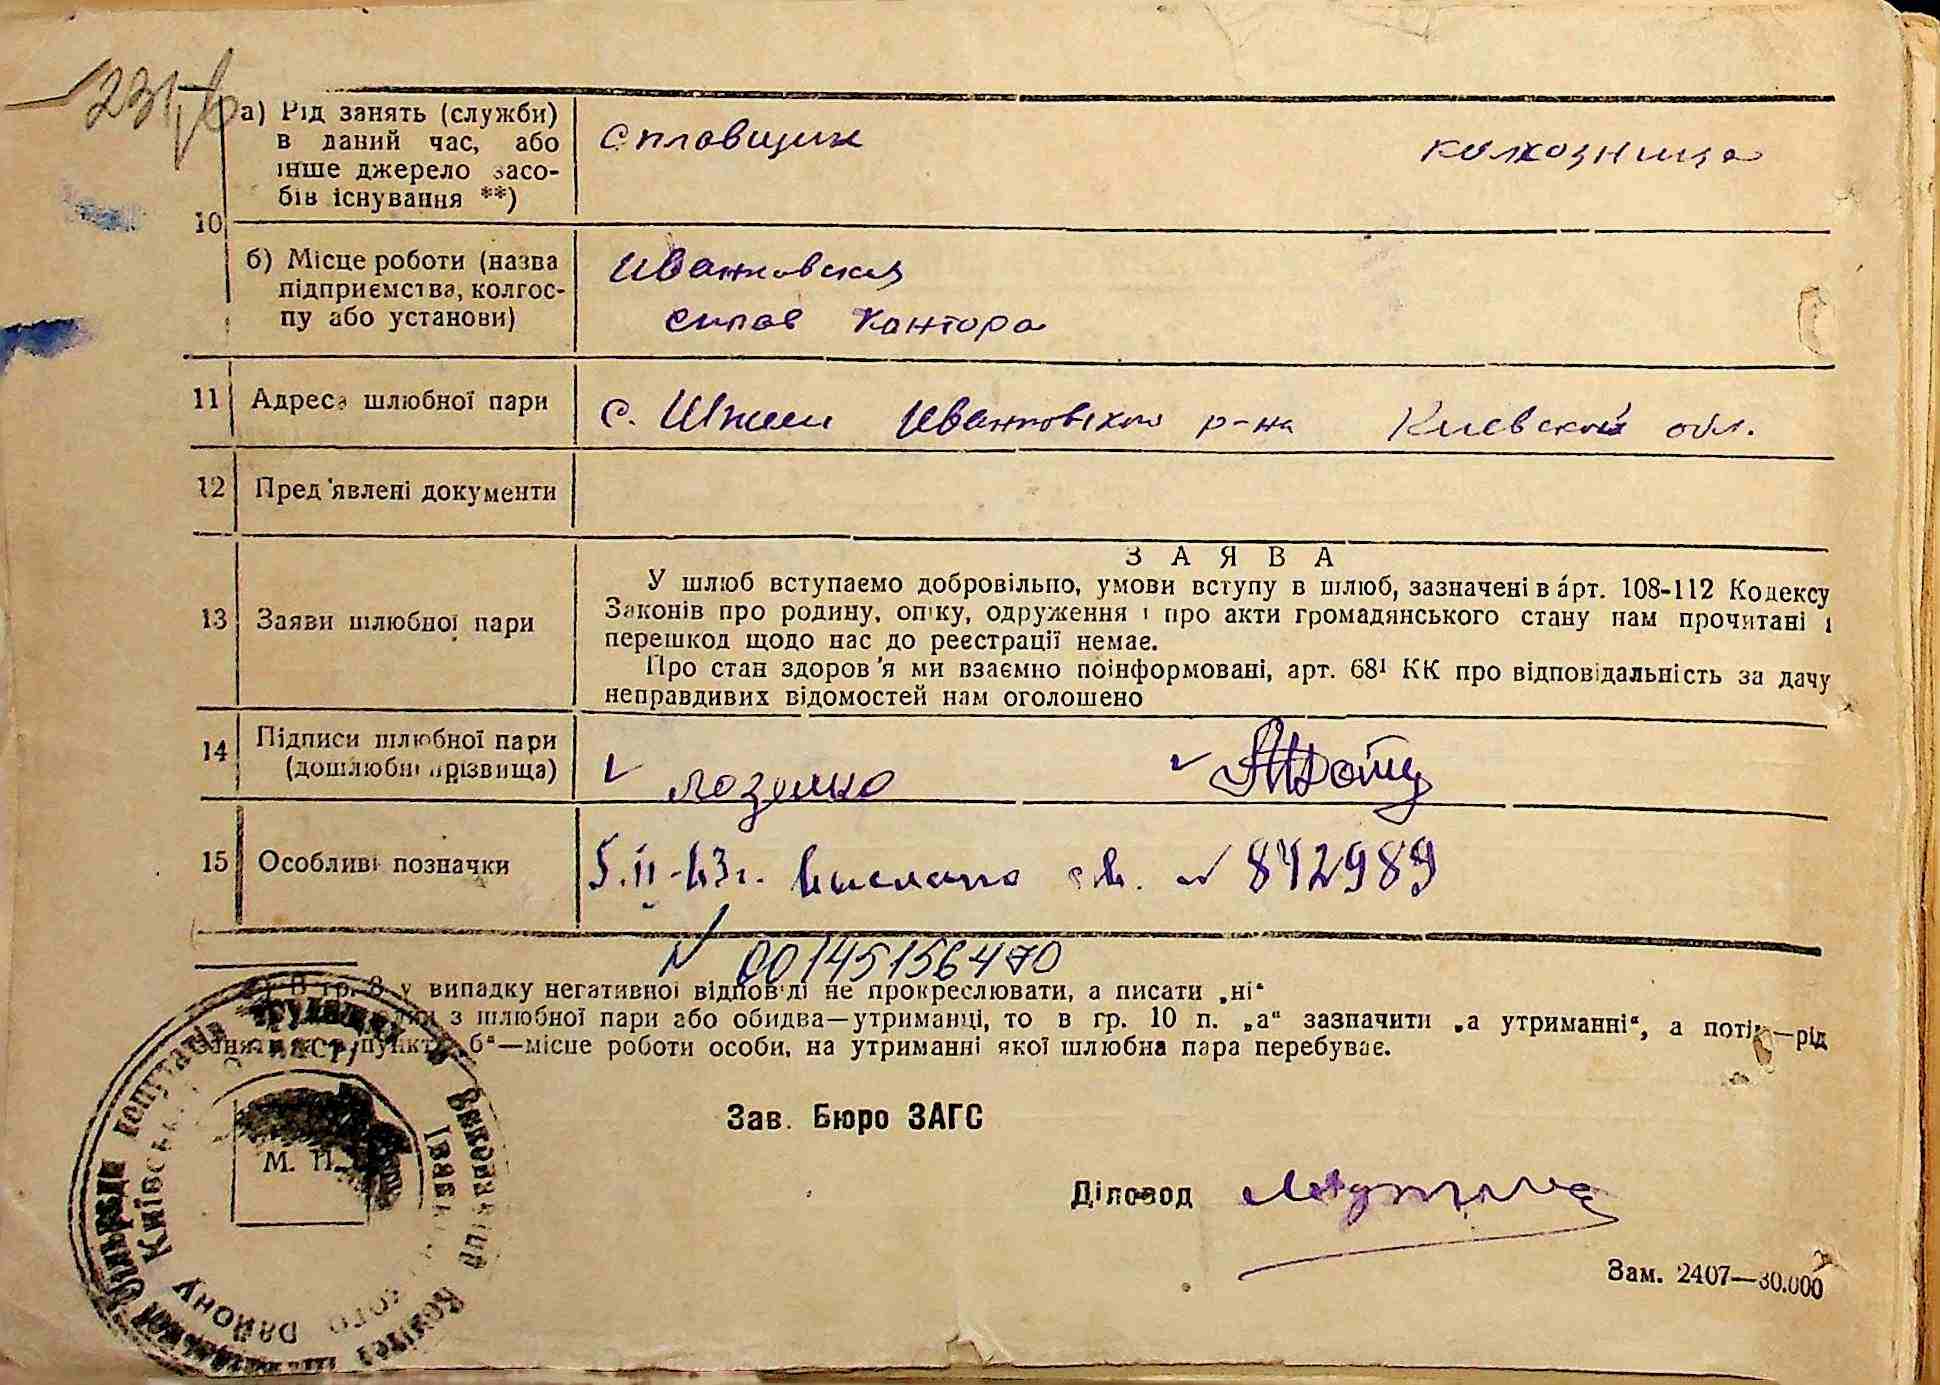 а) Рід занять (служби)
в даний час, або
інше джерело засо-
бів існування **)
сплавщик
колхозница
10
б) Місце роботи (назва
підприємства, колгос-
пу або установи)
Иванковская
сплав Кантора
11 Адреса шлюбної пари
с. Шпили Иванковского р-на Киевской обл.
12 Пред'явлені документи
13 Заяви шлюбної пари
ЗАЯВА
У шлюб вступаємо добровільно, умови вступу в шлюб, зазначені в арт. 108-112 Кодексу
Законів про родину, опіку, одруження і про акти громадянського стану нам прочитані і
перешкод щодо нас до реєстрації немає.
Про стан здоров'я ми взаємно поінформовані, арт. 68¹ КК про відповідальність за дачу
неправдивих відомостей нам оголошено
14 Підписи шлюбної пари
(дошлюбні прізвища)
15 Особливі позначки
5.II-63г. выслано св. № 842989
N 00145156470
*) В гр. 8 у випадку негативної відповіді не прокреслювати, а писати „ні“
з шлюбної пари або обидва—утриманці, то в гр. 10 п. „а“ зазначити „а утриманні“, а потім—рід
занять, а в пункті „б“—місце роботи особи, на утриманні якої шлюбна пара перебуває.
Зав. Бюро ЗАГС
М. П.
Діловод
Зам. 2407—30.000
Виконавчий Комітет
депутатів трудящих
Іванківського району Київської області